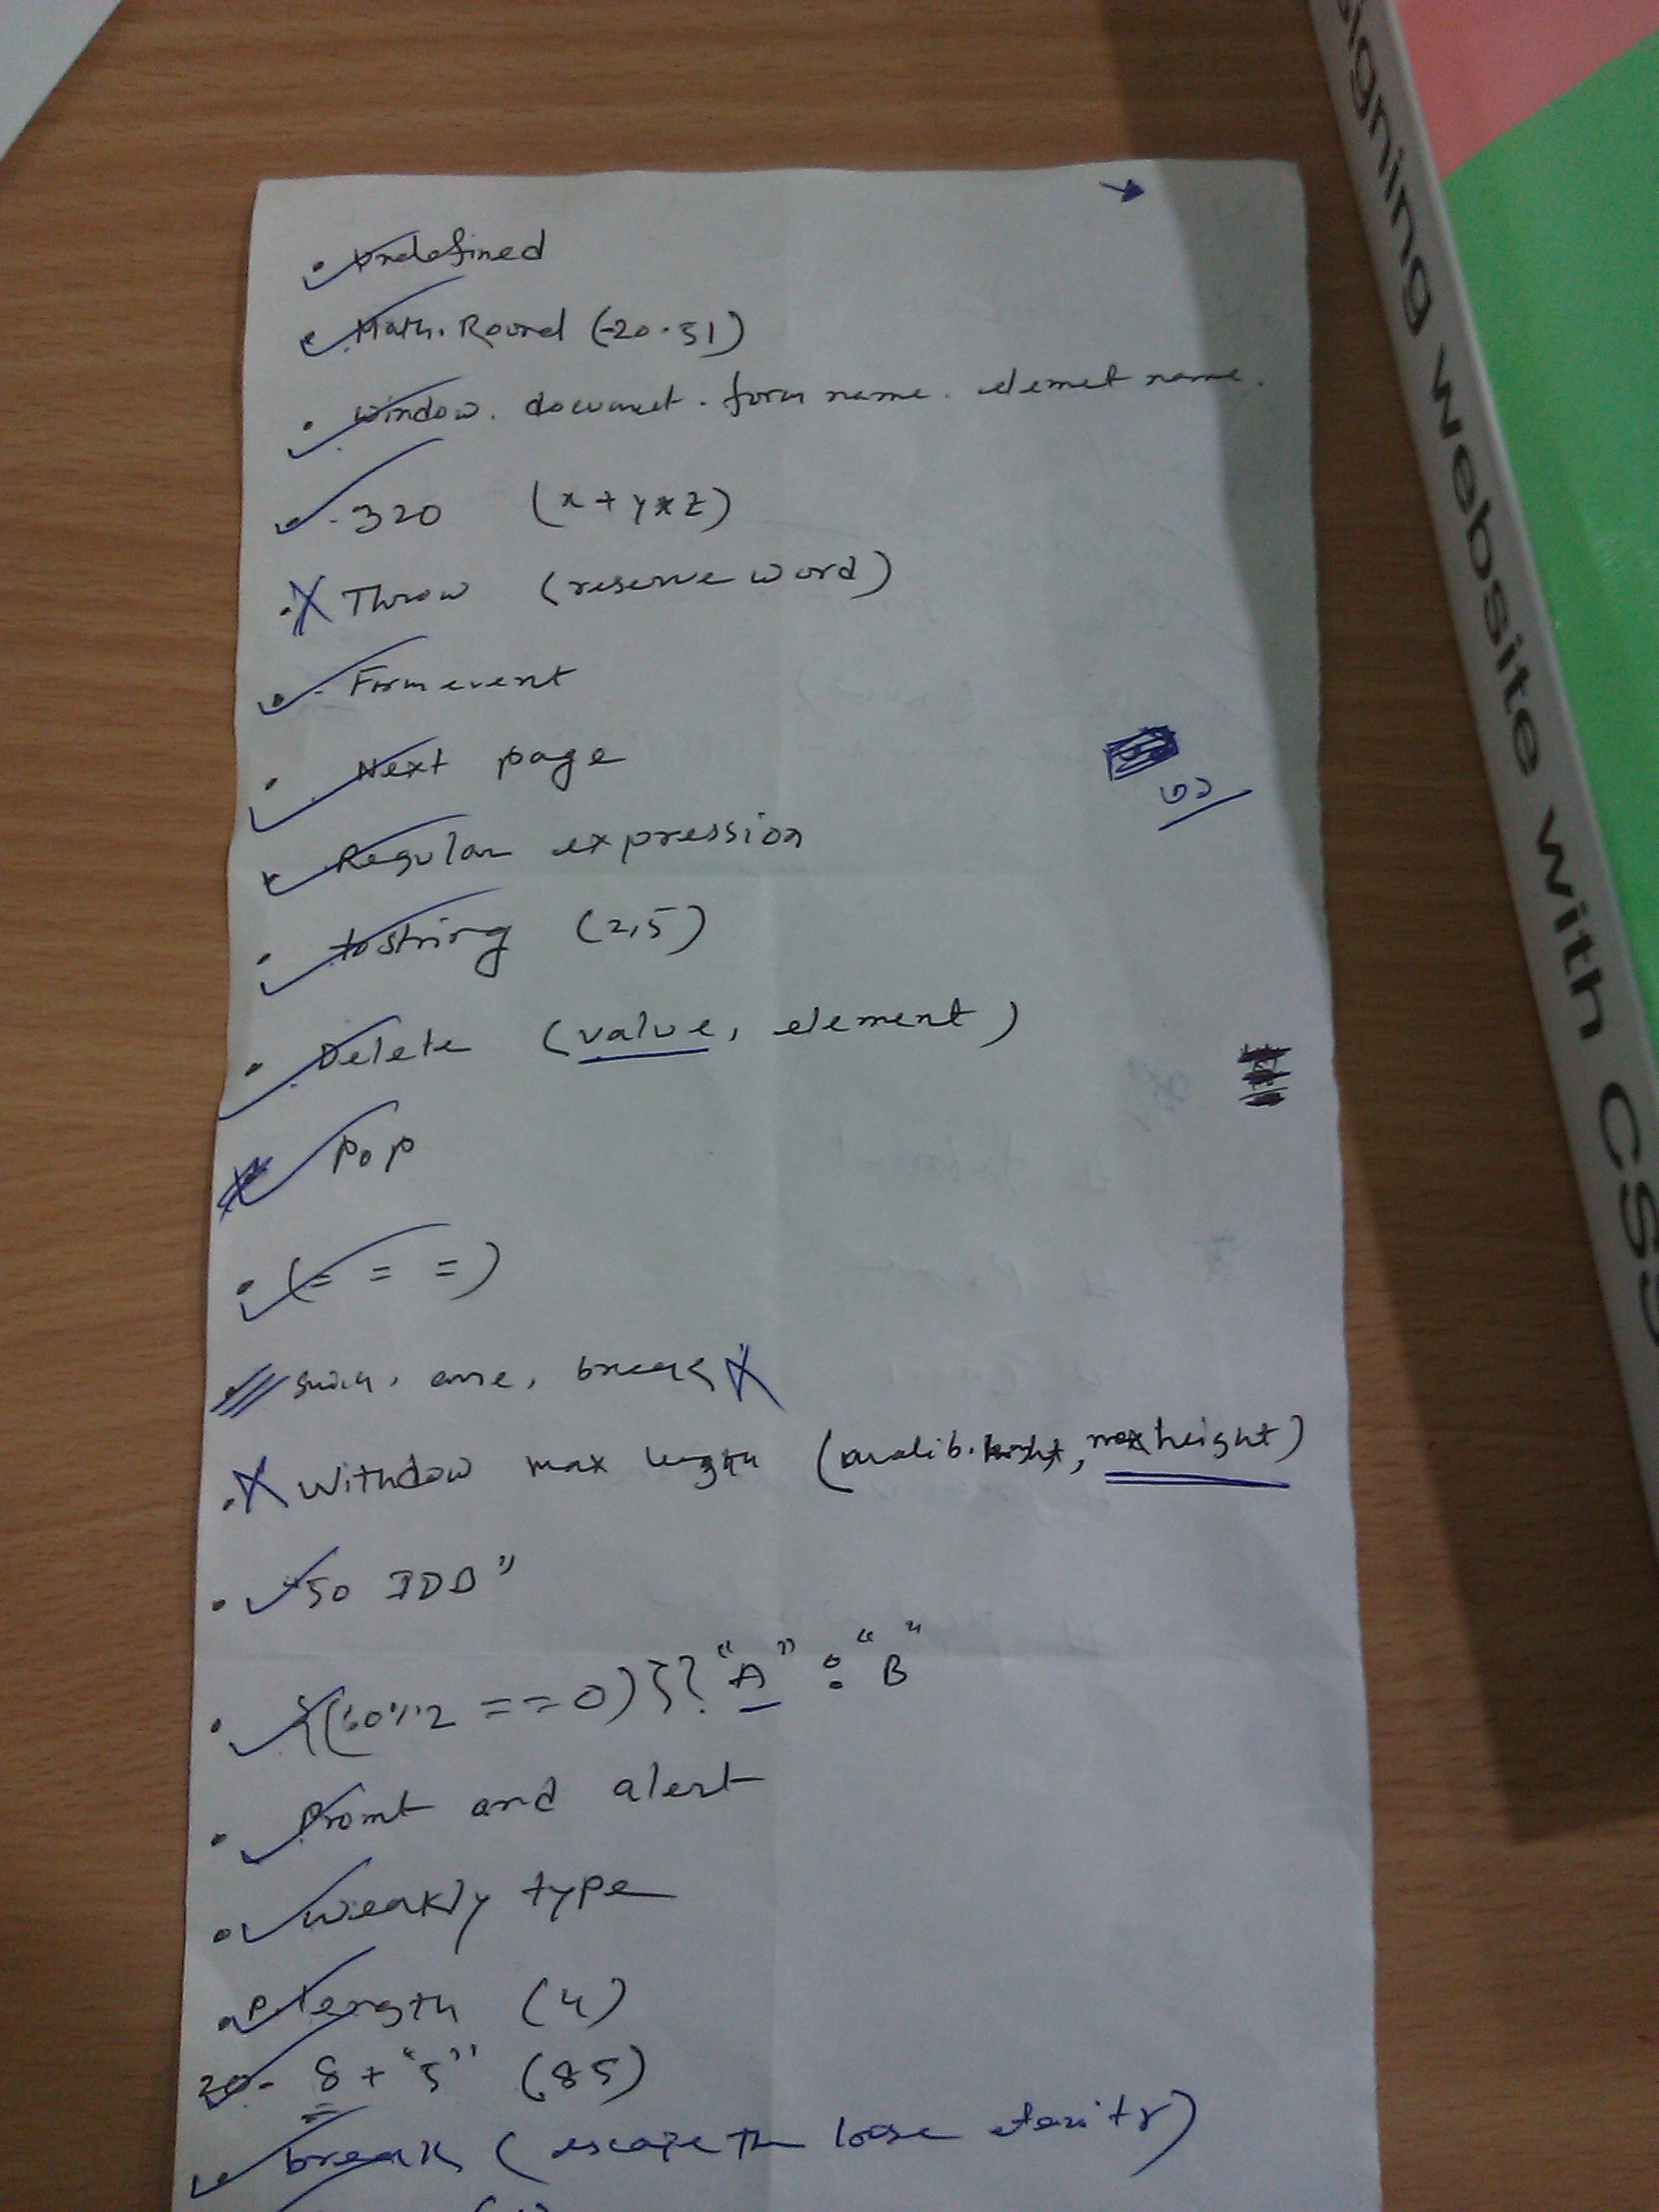 undefined
Math. Round (-20.51)
window. document. form name. elemet name.
320 (x + y * z)
Throw (reserve word)
Form event
Next page
Regular expression
tostring (2,5)
Delete (value, element)
Pop
(= = =)
break
Withdow max length (, max height)
"50 IDB"
{(60%2 == 0)}? "A" : "B"
Promt and alert
weakly type
P.length (4)
20. 8 + "5" (85)
break (escape the)
signing website with CSS